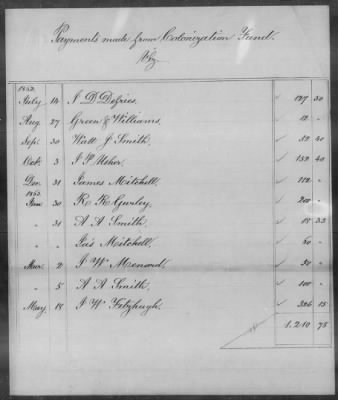 Payments made from Colonization Fund.
Viz
1862.
July 14 J D Defrees. 50
Aug. 27 Green & Williams. 12 "
Sept. 30 Watt J Smith. 52 40
Oct. 3 J P Usher. 152 40
Dec. 31 James Mitchell. 112 "
1863.
Jan. 30 R R Gurley. 200 "
" 31 A A Smith. 18 33
" " Mitchell. 50 "
Mar. 2 J W Menard. 50 "
" 5 A A Smith. 100 "
May. 18 J W Fitzhugh. 326 15
1.210 78